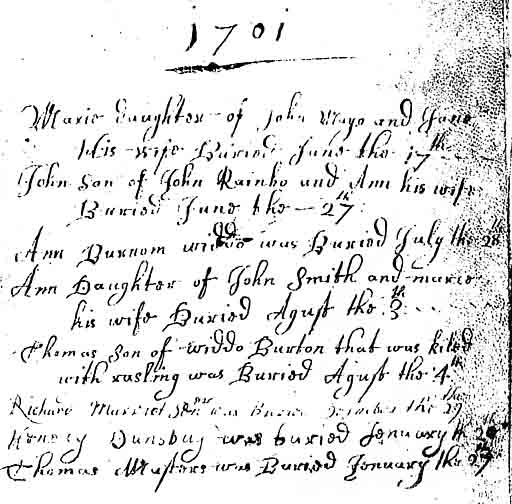 1701
Marie daughter of John Mayo and Jane
his wife Buried June the 17th
John Son of John Rainbo and Ann his wife
Buried June the 27th
Ann Burnom widdo was Buried July the 28th
Ann Daughter of John Smith and marie
his wife Buried Agust the 3th
Thomas Son of widdo Burton that was kiled
with rasling was Buried Agust the 4th
Richard was Buried the 29th
Henery Dunsbuy was buried Jenuary th
Thomas Masters was Buried Jenuary the